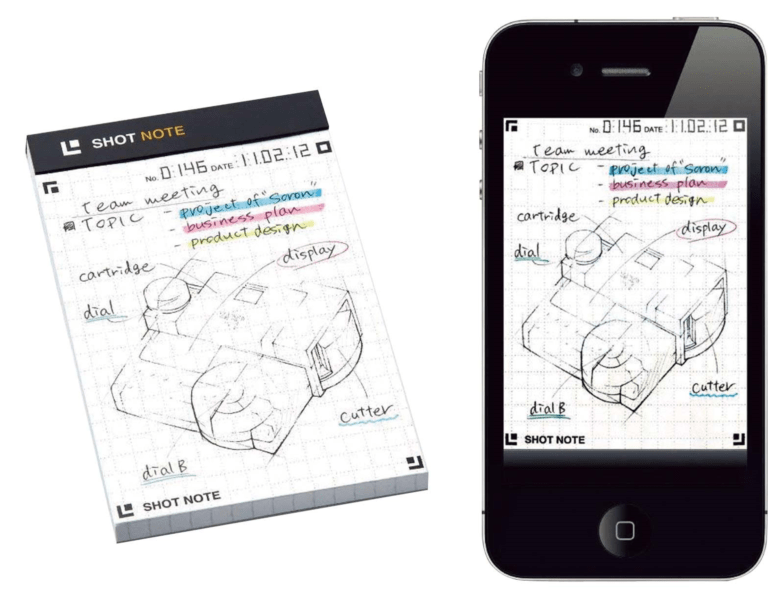 SHOT NOTE
No. 0:146 DATE :11.02.12
Team meeting
TOPIC - project of "Soron"
- business plan
- product design
cartridge
display
dial
cutter
dial B
SHOT NOTE
No. 0:146 DATE :11.02.12
Team meeting
TOPIC - project of "Soron"
- business plan
- product design
cartridge
display
dial
cutter
dial B
SHOT NOTE